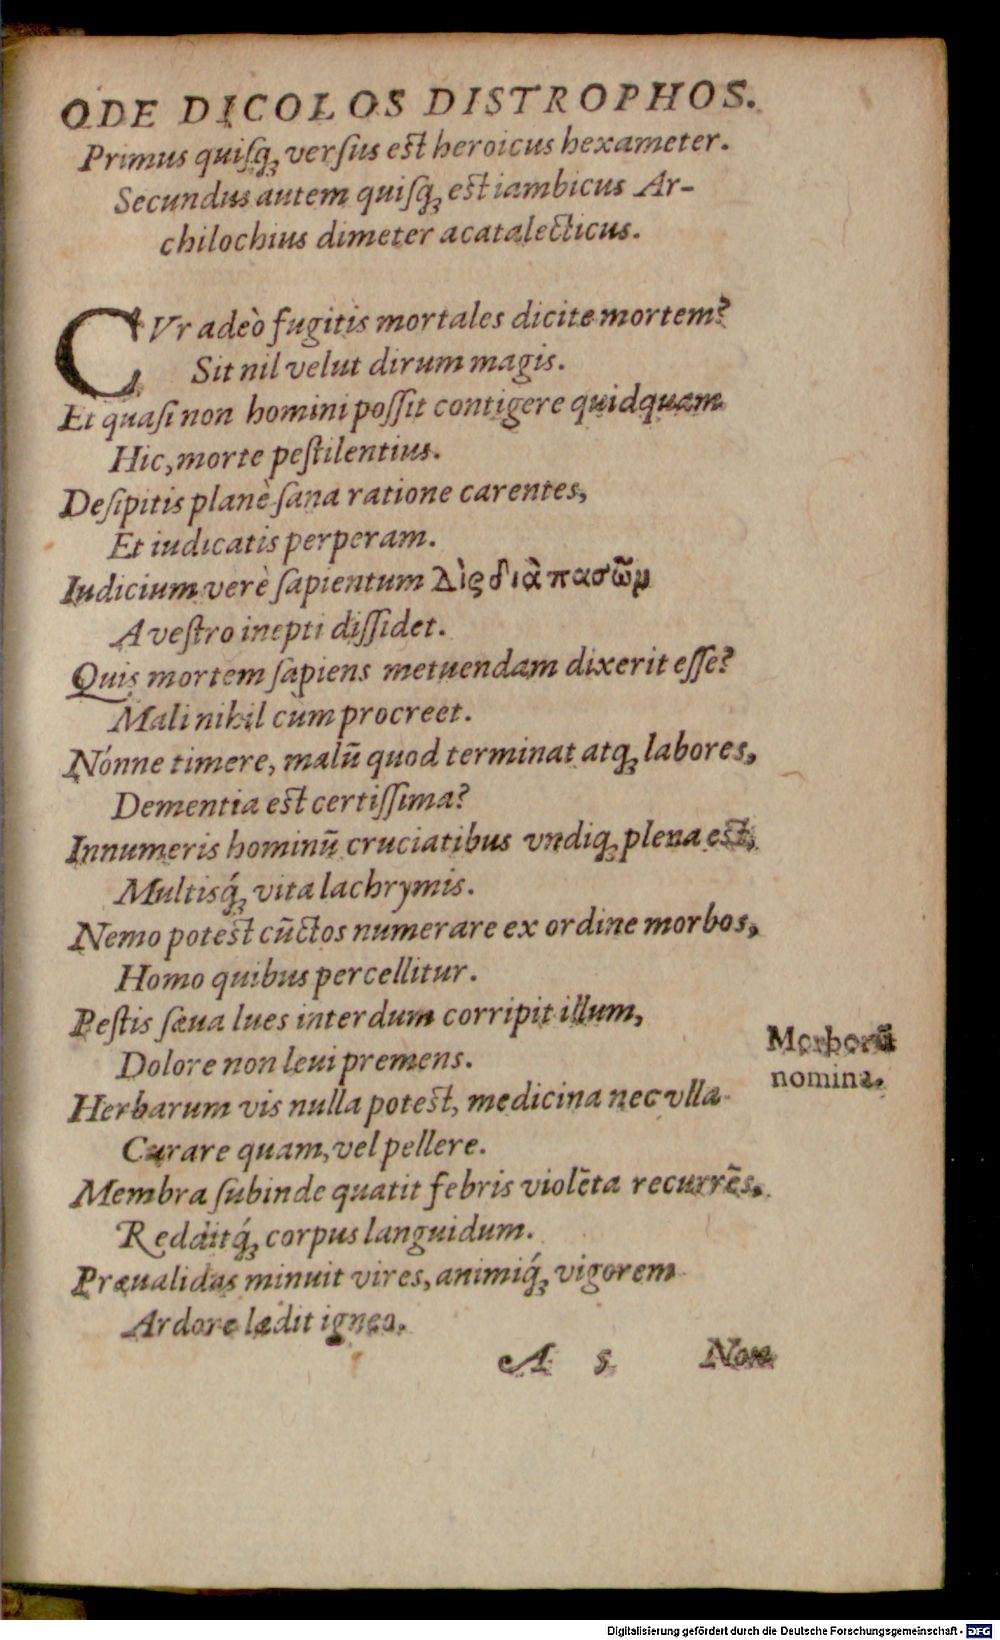 ODE DICOLOS DISTROPHOS.
Primus quiſq́ꝫ verſus est heroicus hexameter.
Secundus autem quiſqꝫ est iambicus Ar-
chilochius dimeter acatalecticus.
CVr adeò fugitis mortales dicite mortem?
Sit nil velut dirum magis.
Et quaſi non homini poſſit contigere quidquam
Hic, morte peſtilentius.
Deſipitis planè ſana ratione carentes,
Et iudicatis perperam.
Iudicium verè ſapientum Δὶς διὰ πασῶμ
A veſtro inepti diſſidet.
Quis mortem ſapiens metuendam dixerit eſſe?
Mali nihil cùm procreet.
Nónne timere, malũ quod terminat atqꝫ labores,
Dementia est certiſſima?
Innumeris hominũ cruciatibus vndiqꝫ plena est,
Multisq́ꝫ vita lachrymis.
Nemo potest cũctos numerare ex ordine morbos,
Homo quibus percellitur.
Peſtis ſæua lues interdum corripit illum,
Dolore non leui premens.
Morborũ
nomina.
Herbarum vis nulla potest, medicina nec vlla
Curare quam, vel pellere.
Membra ſubinde quatit febris violẽta recurrẽs,
Redditq́ꝫ corpus languidum.
Præualidas minuit vires, animiq́ꝫ vigorem
Ardore lædit igneo.
A 5 Non
Digitalisierung gefördert durch die Deutsche Forschungsgemeinschaft - DFG